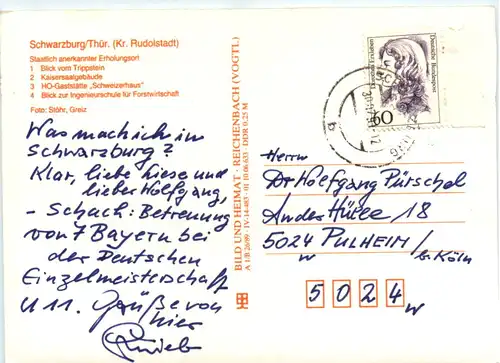 Schwarzburg/Thür. (Kr. Rudolstadt)
Staatlich anerkannter Erholungsort
1 Blick vom Trippstein
2 Kaisersaalgebäude
3 HO-Gaststätte „Schweizerhaus"
4 Blick zur Ingenieurschule für Forstwirtschaft
Foto: Stöhr, Greiz
Was mach ich in
Schwarzburg?
Klar, liebe Liese und
lieber Wolfgang,
- Schach: Betreuung
von 7 Bayern bei
der Deutschen
Einzelmeisterschaft
U 11. Grüße von
hier
BILD UND HEIMAT · REICHENBACH (VOGTL)
A 1/B 26/89 · IV-14-483 · 01 10 06 633 · DDR 0,25 M
Dorothea Erxleben
Deutsche Bundespost
60
Herrn
Dr Wolfgang Pürschel
An der Hülle 18
5024 PULHEIM/
b. Köln
5024